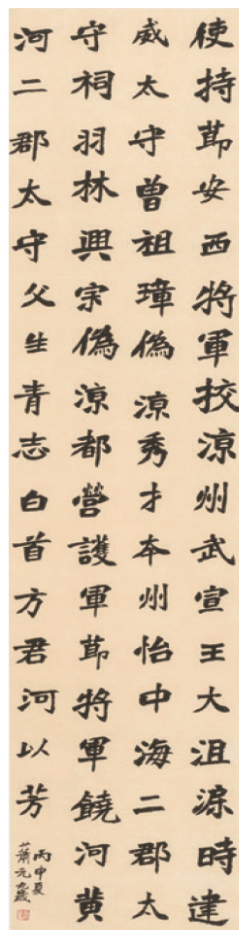 使持莭安西將軍挍涼州武宣王大沮渠時建
威太守曾祖璋偽涼秀才本州怡中海二郡太
守祠羽林興宗偽涼都營護軍莭將軍饒河黃
河二郡太守父生青志白首方君河以芳
丙申夏
蕭元